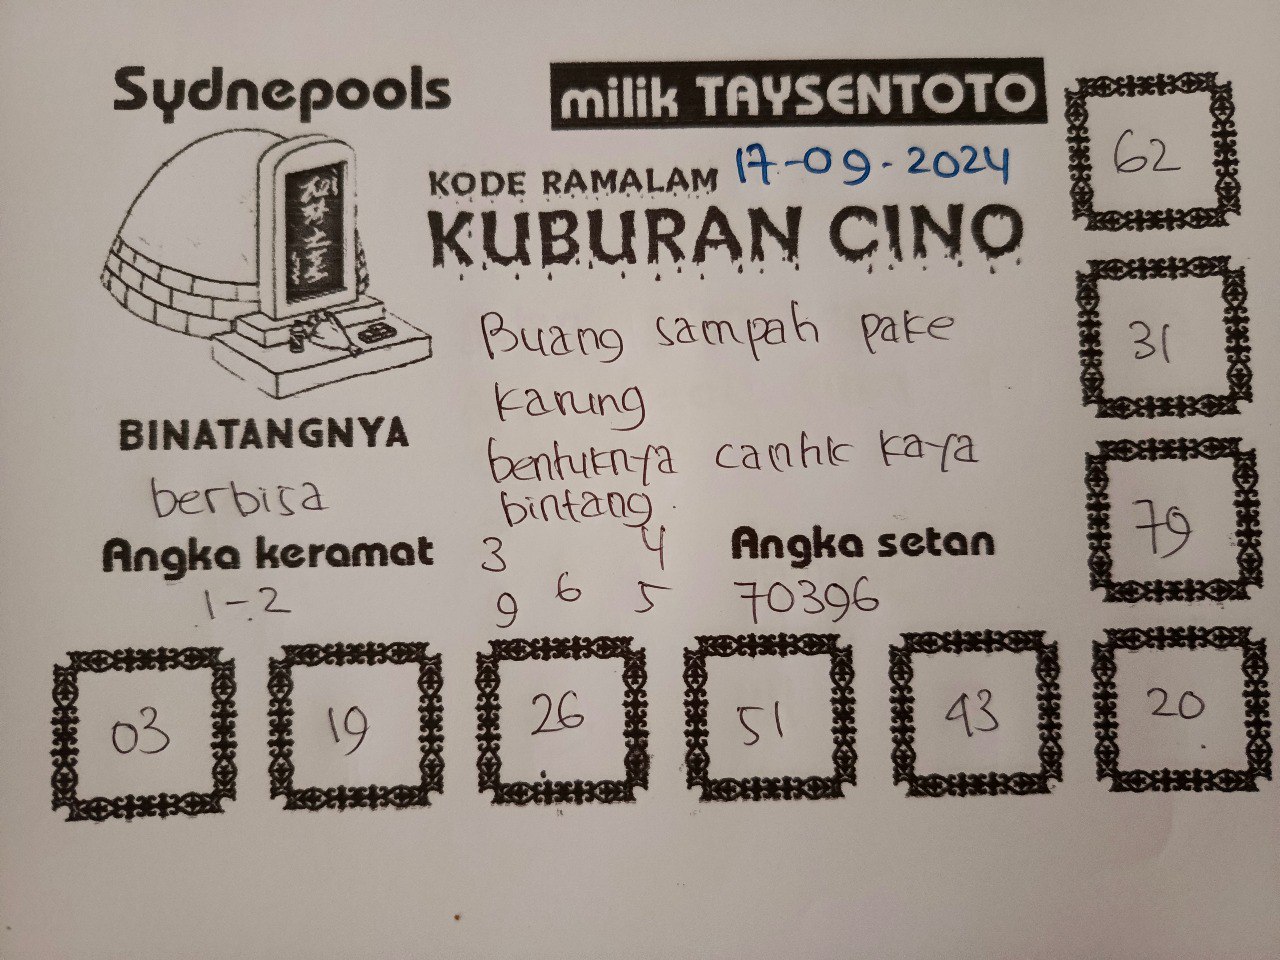 Sydnepools
milik TAYSENTOTO
KODE RAMALAM 17-09-2024
KUBURAN CINO
Buang sampah pake
karung
bentuknya cantik kaya
bintang.
BINATANGNYA
berbisa
Angka keramat
1-2
3 4
6
9 5
Angka setan
70396
62
31
79
03
19
26
51
43
20